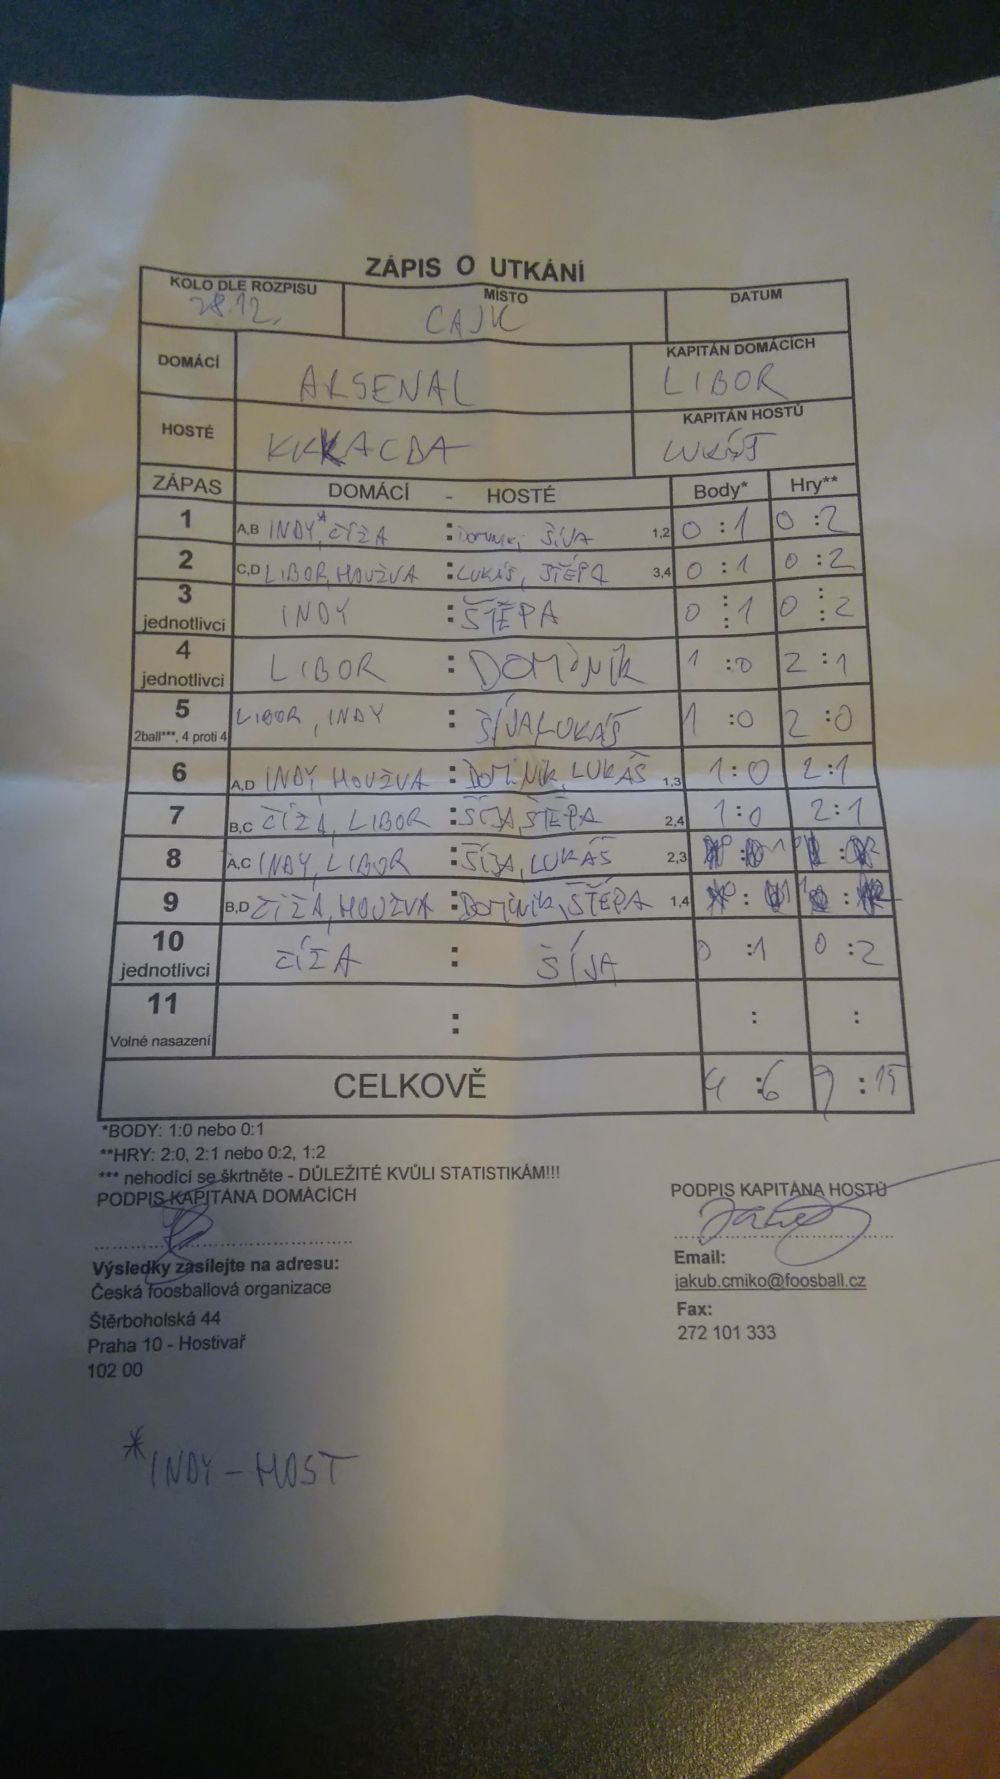 ZÁPIS O UTKÁNÍ
KOLO DLE ROZPISU MÍSTO DATUM
28.12. CAJK
DOMÁCÍ ARSENAL KAPITÁN DOMÁCÍCH LIBOR
HOSTÉ KKKACDA KAPITÁN HOSTŮ LUKÁŠ
ZÁPAS DOMÁCÍ - HOSTÉ Body* Hry**
1 A,B INDY*, ČÍŽA : ŠÍJA 1,2 0 :1 0 :2
2 C,D LIBOR, HOUŽVA : LUKÁŠ, ŠTĚPA 3,4 0 :1 0 :2
3 jednotlivci INDY : ŠTĚPA 0 :1 0 :2
4 jednotlivci LIBOR : DOMINIK 1 :0 2 :1
5 2ball***, 4 proti 4 LIBOR, INDY : ŠÍJA, LUKÁŠ 1 :0 2 :0
6 A,D INDY, HOUŽVA : DOMINIK, LUKÁŠ 1,3 1:0 2:1
7 B,C ČÍŽA, LIBOR : ŠÍJA, ŠTĚPA 2,4 1:0 2:1
8 A,C INDY, LIBOR : ŠÍJA, LUKÁŠ 2,3 : :
9 B,D ČÍŽA, HOUŽVA : DOMINIK, ŠTĚPA 1,4 : :
10 jednotlivci ČÍŽA : ŠÍJA 0 :1 0 :2
11 Volné nasazení : : :
CELKOVĚ 4 :6 9 :15
*BODY: 1:0 nebo 0:1
**HRY: 2:0, 2:1 nebo 0:2, 1:2
*** nehodící se škrtněte - DŮLEŽITÉ KVŮLI STATISTIKÁM!!!
PODPIS KAPITÁNA DOMÁCÍCH PODPIS KAPITÁNA HOSTŮ
Výsledky zasílejte na adresu: Email:
Česká foosballová organizace jakub.cmiko@foosball.cz
Štěrboholská 44 Fax:
Praha 10 - Hostivař 272 101 333
102 00
*INDY - HOST